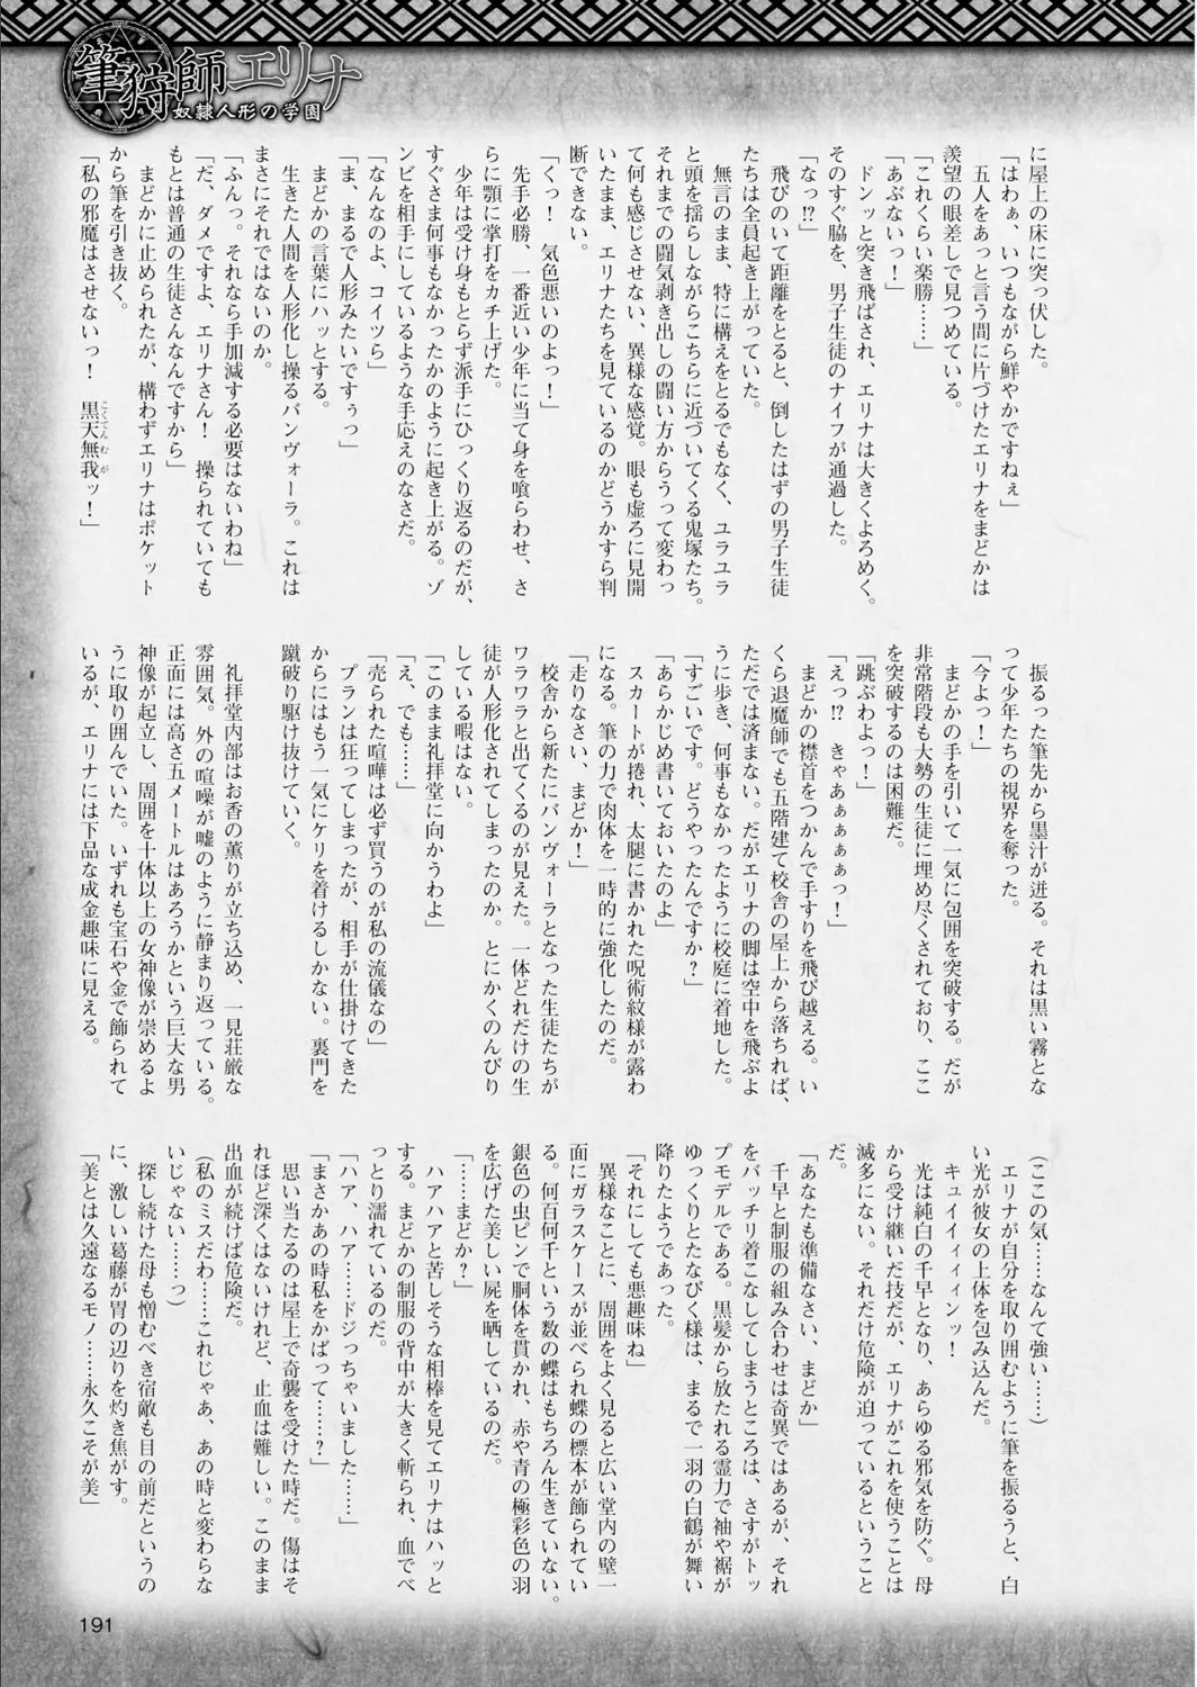 筆狩師エリナ
奴隷人形の学園
に屋上の床に突っ伏した。
「はわぁ、いつもながら鮮やかですねぇ」
五人をあっと言う間に片づけたエリナをまどかは
羨望の眼差しで見つめている。
「これくらい楽勝……」
「あぶないっ！」
ドンッと突き飛ばされ、エリナは大きくよろめく。
そのすぐ脇を、男子生徒のナイフが通過した。
「なっ!?」
飛びのいて距離をとると、倒したはずの男子生徒
たちは全員起き上がっていた。
無言のまま、特に構えをとるでもなく、ユラユラ
と頭を揺らしながらこちらに近づいてくる鬼塚たち。
それまでの闘気剥き出しの闘い方からうって変わっ
て何も感じさせない、異様な感覚。眼も虚ろに見開
いたまま、エリナたちを見ているのかどうかすら判
断できない。
「くっ！　気色悪いのよっ！」
先手必勝、一番近い少年に当て身を喰らわせ、さ
らに顎に掌打をカチ上げた。
少年は受け身もとらず派手にひっくり返るのだが、
すぐさま何事もなかったかのように起き上がる。ゾ
ンビを相手にしているような手応えのなさだ。
「なんなのよ、コイツら」
「ま、まるで人形みたいですぅっ」
まどかの言葉にハッとする。
生きた人間を人形化し操るバンヴォーラ。これは
まさにそれではないのか。
「ふんっ。それなら手加減する必要はないわね」
「だ、ダメですよ、エリナさん！　操られていても
もとは普通の生徒さんなんですから」
まどかに止められたが、構わずエリナはポケット
から筆を引き抜く。
「私の邪魔はさせないっ！　黒天無我ッ！」
こくてんむが
振るった筆先から墨汁が迸る。それは黒い霧とな
って少年たちの視界を奪った。
「今よっ！」
まどかの手を引いて一気に包囲を突破する。だが
非常階段も大勢の生徒に埋め尽くされており、ここ
を突破するのは困難だ。
「跳ぶわよっ！」
「えっ!?　きゃあぁぁぁぁっ！」
まどかの襟首をつかんで手すりを飛び越える。い
くら退魔師でも五階建て校舎の屋上から落ちれば、
ただでは済まない。だがエリナの脚は空中を飛ぶよ
うに歩き、何事もなかったように校庭に着地した。
「すごいです。どうやったんですか？」
「あらかじめ書いておいたのよ」
スカートが捲れ、太腿に書かれた呪術紋様が露わ
になる。筆の力で肉体を一時的に強化したのだ。
「走りなさい、まどか！」
校舎から新たにバンヴォーラとなった生徒たちが
ワラワラと出てくるのが見えた。一体どれだけの生
徒が人形化されてしまったのか。とにかくのんびり
している暇はない。
「このまま礼拝堂に向かうわよ」
「え、でも……」
「売られた喧嘩は必ず買うのが私の流儀なの」
プランは狂ってしまったが、相手が仕掛けてきた
からにはもう一気にケリを着けるしかない。裏門を
蹴破り駆け抜けていく。
礼拝堂内部はお香の薫りが立ち込め、一見荘厳な
雰囲気。外の喧噪が嘘のように静まり返っている。
正面には高さ五メートルはあろうかという巨大な男
神像が起立し、周囲を十体以上の女神像が崇めるよ
うに取り囲んでいた。いずれも宝石や金で飾られて
いるが、エリナには下品な成金趣味に見える。
（ここの気……なんて強い……）
エリナが自分を取り囲むように筆を振るうと、白
い光が彼女の上体を包み込んだ。
キュイイィィィンッ！
光は純白の千早となり、あらゆる邪気を防ぐ。母
から受け継いだ技だが、エリナがこれを使うことは
滅多にない。それだけ危険が迫っているということ
だ。
「あなたも準備なさい、まどか」
千早と制服の組み合わせは奇異ではあるが、それ
をバッチリ着こなしてしまうところは、さすがトッ
プモデルである。黒髪から放たれる霊力で袖や裾が
ゆっくりとたなびく様は、まるで一羽の白鶴が舞い
降りたようであった。
「それにしても悪趣味ね」
異様なことに、周囲をよく見ると広い堂内の壁一
面にガラスケースが並べられ蝶の標本が飾られてい
る。何百何千という数の蝶はもちろん生きていない。
銀色の虫ピンで胴体を貫かれ、赤や青の極彩色の羽
を広げた美しい屍を晒しているのだ。
「……まどか？」
ハアハアと苦しそうな相棒を見てエリナはハッと
する。まどかの制服の背中が大きく斬られ、血でべ
っとり濡れているのだ。
「ハア、ハア……ドジっちゃいました……」
「まさかあの時私をかばって……？」
思い当たるのは屋上で奇襲を受けた時だ。傷はそ
れほど深くはないけれど、止血は難しい。このまま
出血が続けば危険だ。
（私のミスだわ……これじゃあ、あの時と変わらな
いじゃない……っ）
探し続けた母も憎むべき宿敵も目の前だというの
に、激しい葛藤が胃の辺りを灼き焦がす。
「美とは久遠なるモノ……永久こそが美」
191